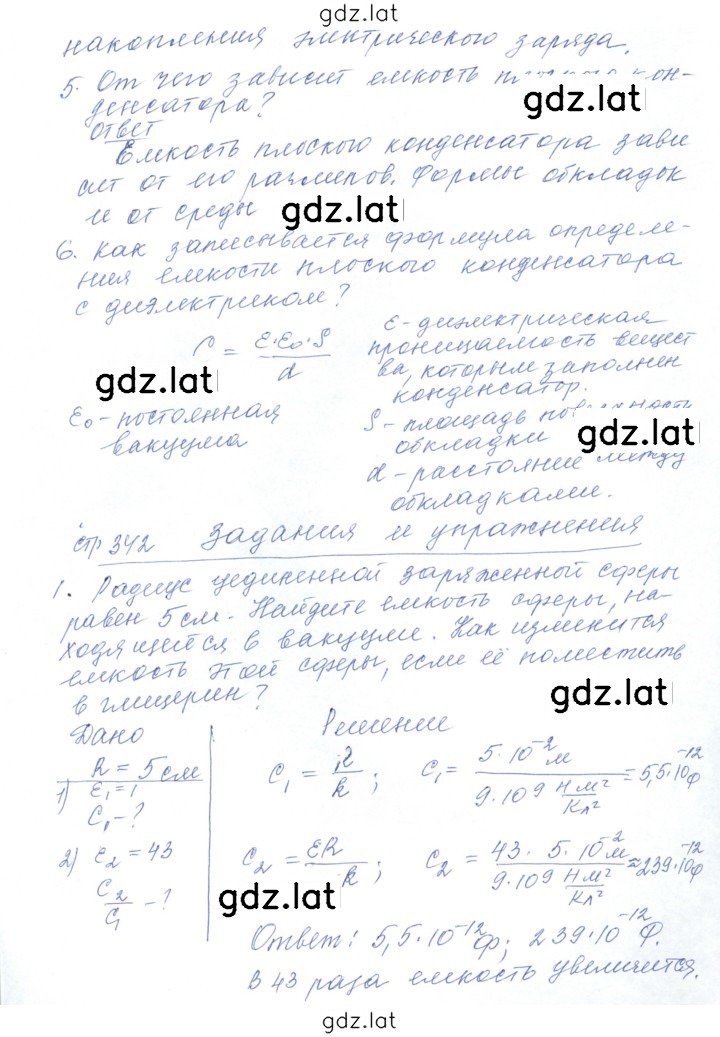 gdz.lat
накопления электрического заряда.
5. От чего зависит емкость кон-
gdz.lat
денсатора?
ответ
Емкость плоского конденсатора зави
сит от его размеров, формы обкладок
и от среды gdz.lat
6. Как записывается формула определе-
ния емкости плоского конденсатора
с диэлектриком?
C = ε·ε₀·S / d
ε - диэлектрическая
проницаемость вещест
ва, которым заполнен
конденсатор.
gdz.lat
ε₀ - постоянная
вакуума
S - площадь поверхности
обкладки gdz.lat
d - расстояние между
обкладками.
стр 342 Задания и упражнения
1. Радиус уединенной заряженной сферы
равен 5 см. Найдите емкость сферы, на-
ходящейся в вакууме. Как изменится
емкость этой сферы, если её поместить
в глицерин? gdz.lat
Дано
R = 5 см
1) ε₁ = 1
C₁ - ?
2) ε₂ = 43
C₂/C₁ - ?
Решение
C₁ = R/k; C₁ = 5·10⁻² м / 9·109 Нм²/Кл² = 5,5·10⁻¹² Ф
C₂ = εR/k; C₂ = 43·5·10⁻² м / 9·109 Нм²/Кл² ≈ 239·10⁻¹² Ф
gdz.lat
Ответ: 5,5·10⁻¹² Ф; 239·10⁻¹² Ф.
В 43 раза емкость увеличится.
gdz.lat